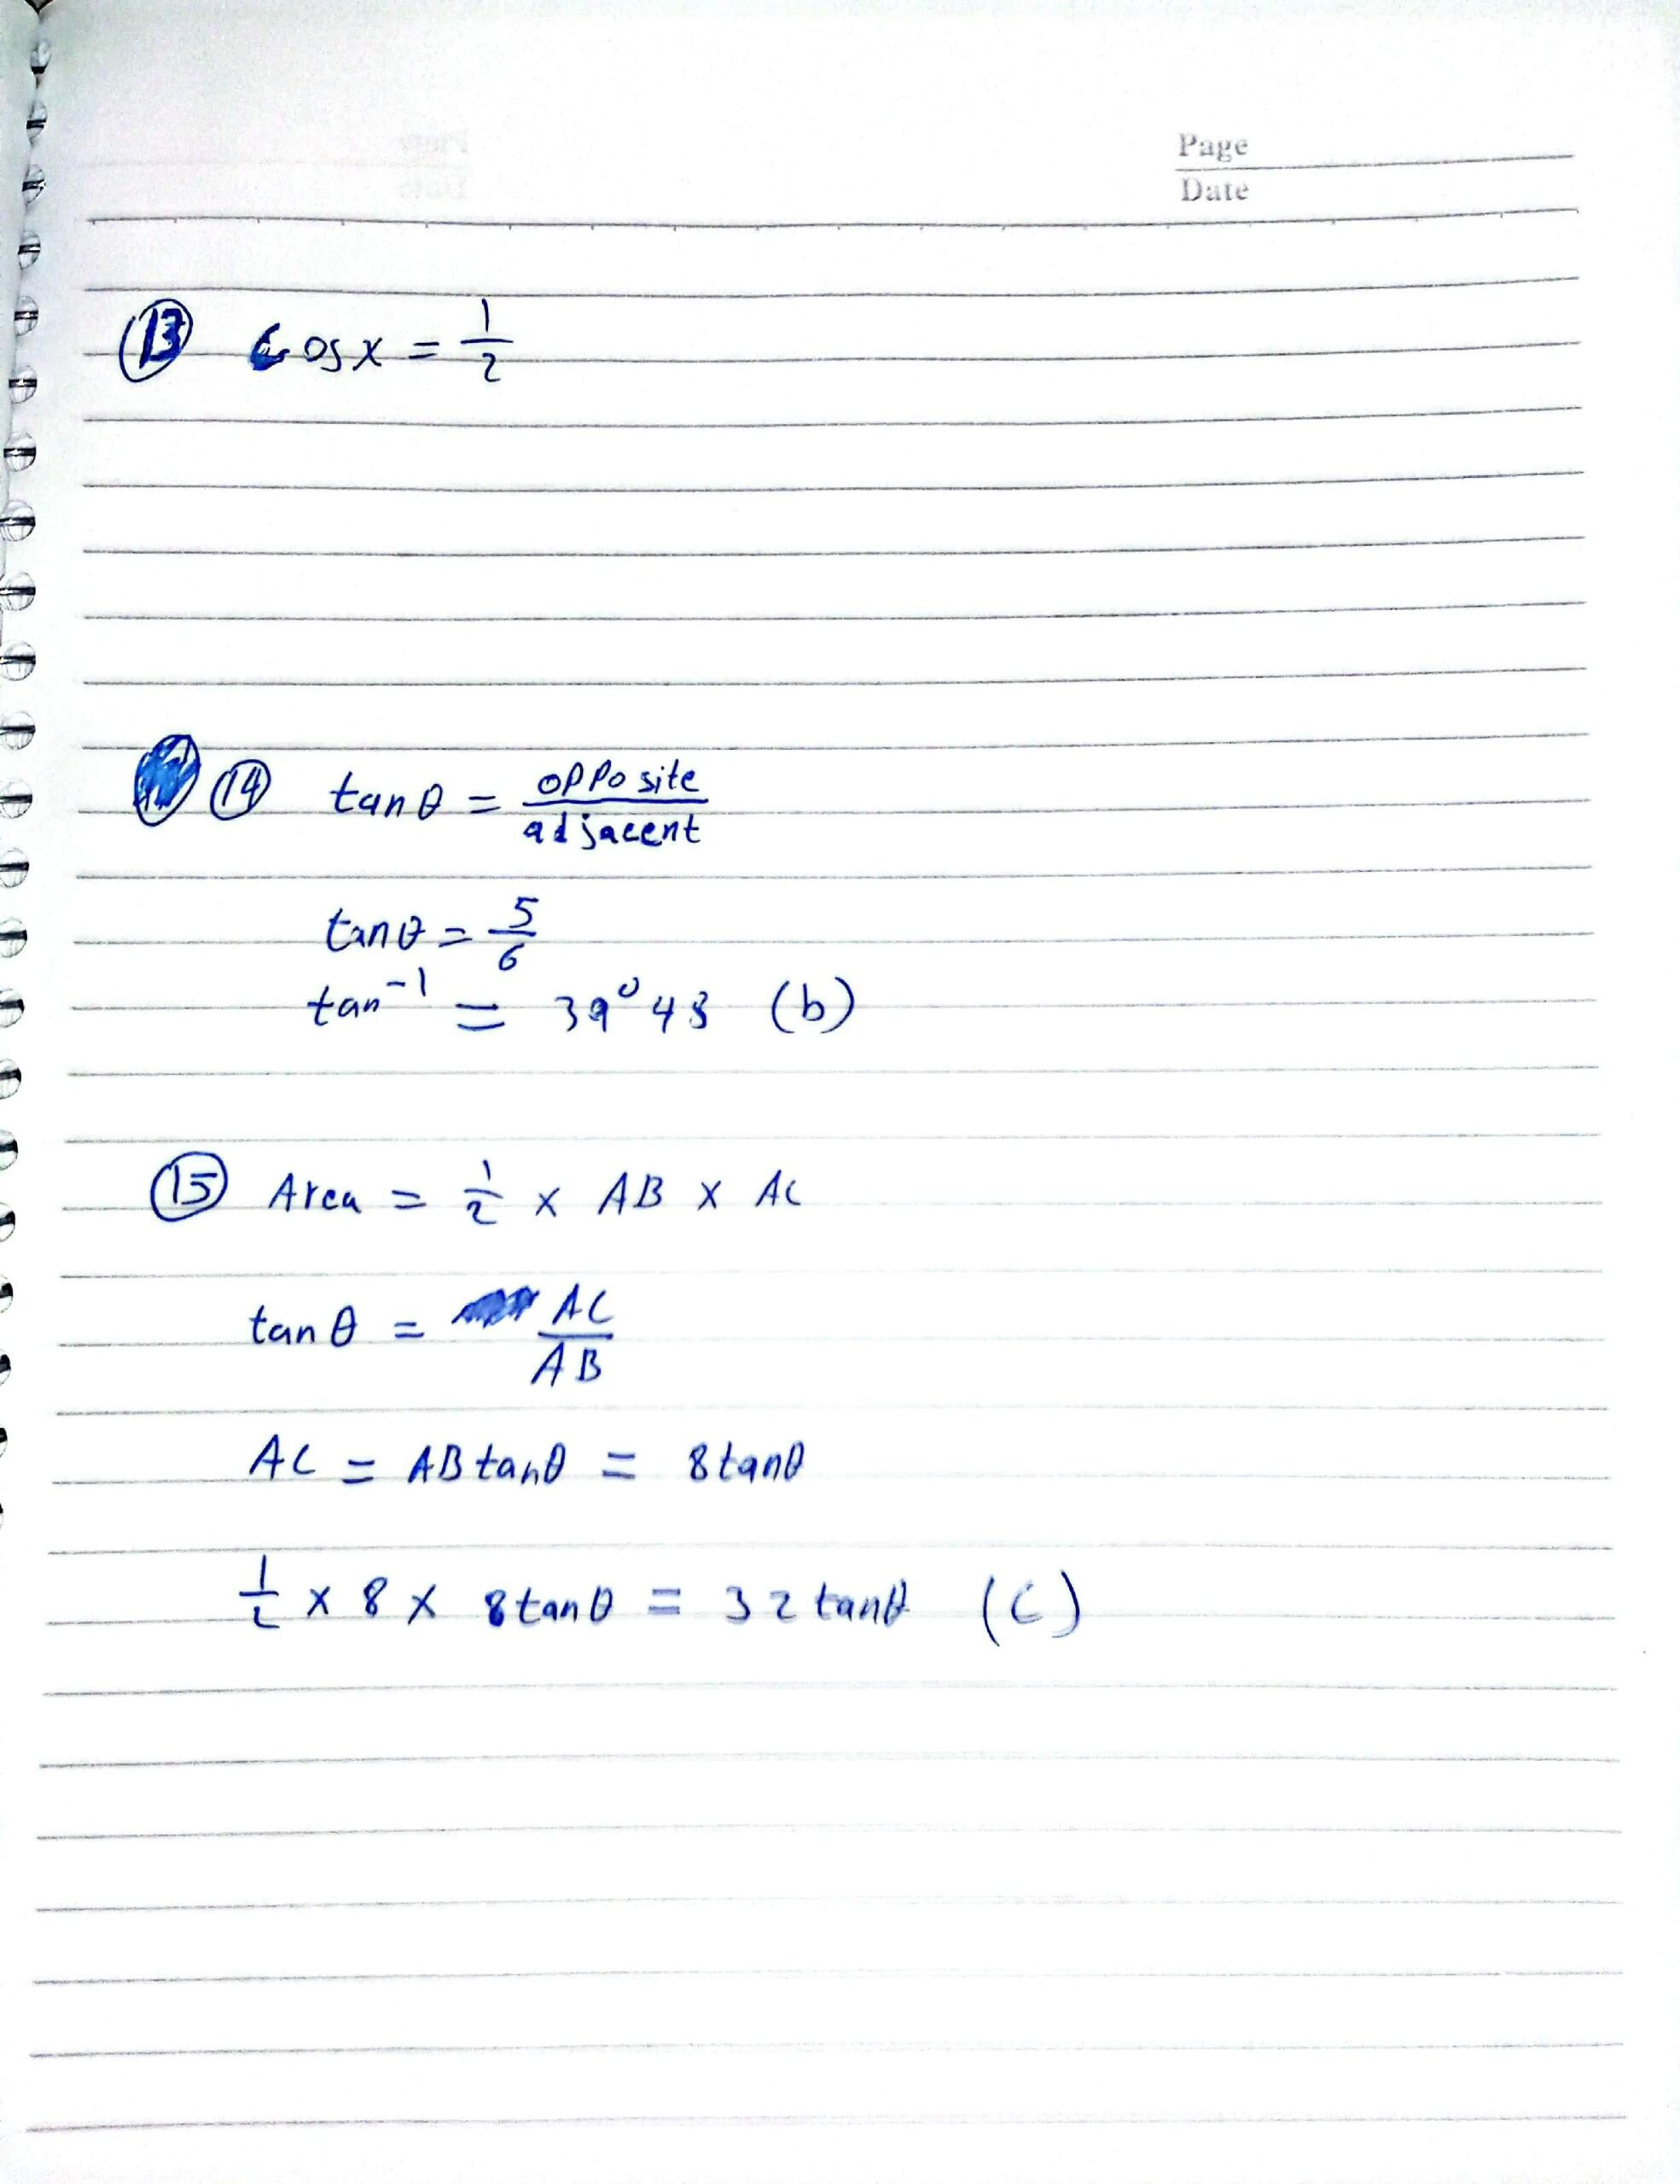 Page
Date
13 Cos x = 1/2
14 tan θ = opposite/adjacent
tan θ = 5/6
tan⁻¹ = 39° 48 (b)
15 Area = 1/2 × AB × AC
tan θ = AC/AB
AC = AB tan θ = 8 tan θ
1/2 × 8 × 8 tan θ = 32 tan θ (C)